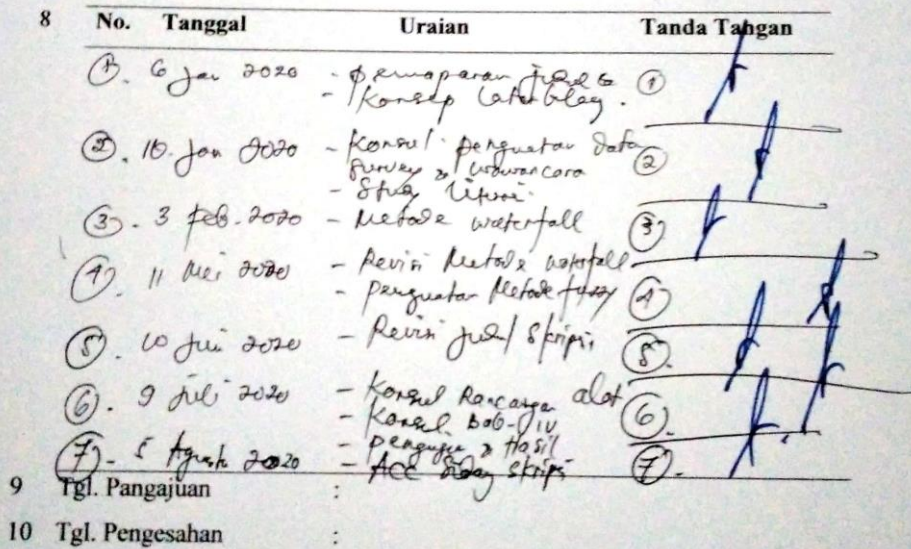 8 No. Tanggal Uraian Tanda Tangan
1. 6 Jan 2020 - pemaparan judul & 1
- Konsep latar blag.
2. 10 Jan 2020 - Konsul penguatan data 2
survey & wawancara
- Study litur
3. 3 feb. 2020 - Metode waterfall 3
4. 11 Mei 2020 - Revisi Metode waterfall
- penguatan Metode fuzzy 4
5. 10 Juni 2020 - Revisi judul Skripsi 5.
6. 9 Juli 2020 - Konsul Rancangan alat 6.
- Konsul Bab-IV
- pengujian & Hasil
7. 5 Agusts 2020 - Acc Sidang skripsi 7.
9 Tgl. Pangajuan :
10 Tgl. Pengesahan :